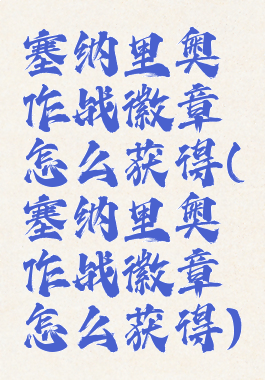 塞纳里奥
作战徽章
怎么获得(
塞纳里奥
作战徽章
怎么获得)